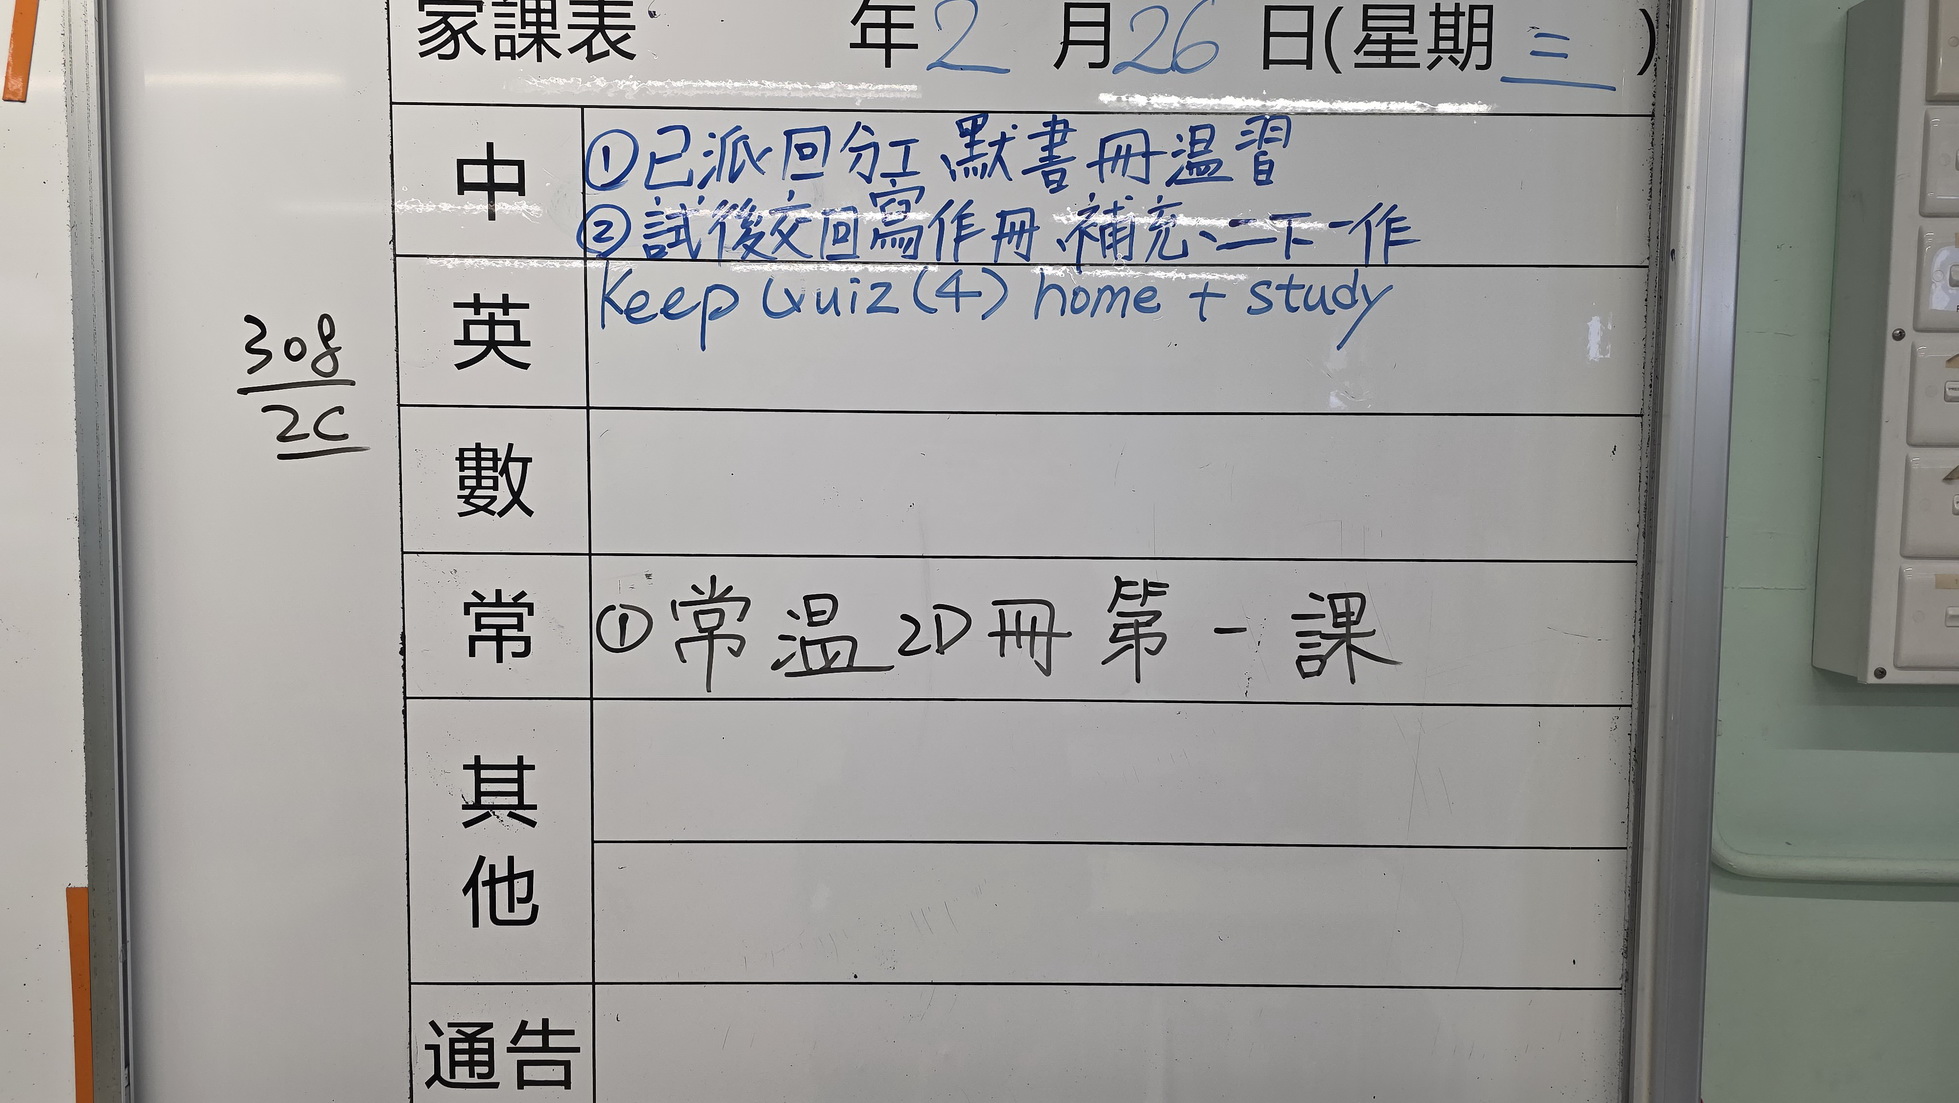 家課表 年2月26日(星期三)
中 ①已派回分工、默書冊温習
②試後交回寫作冊、補充、二下一作
英 Keep Quiz(4) home + study
308
2C
數
常 ①常温2D冊第一課
其他
通告